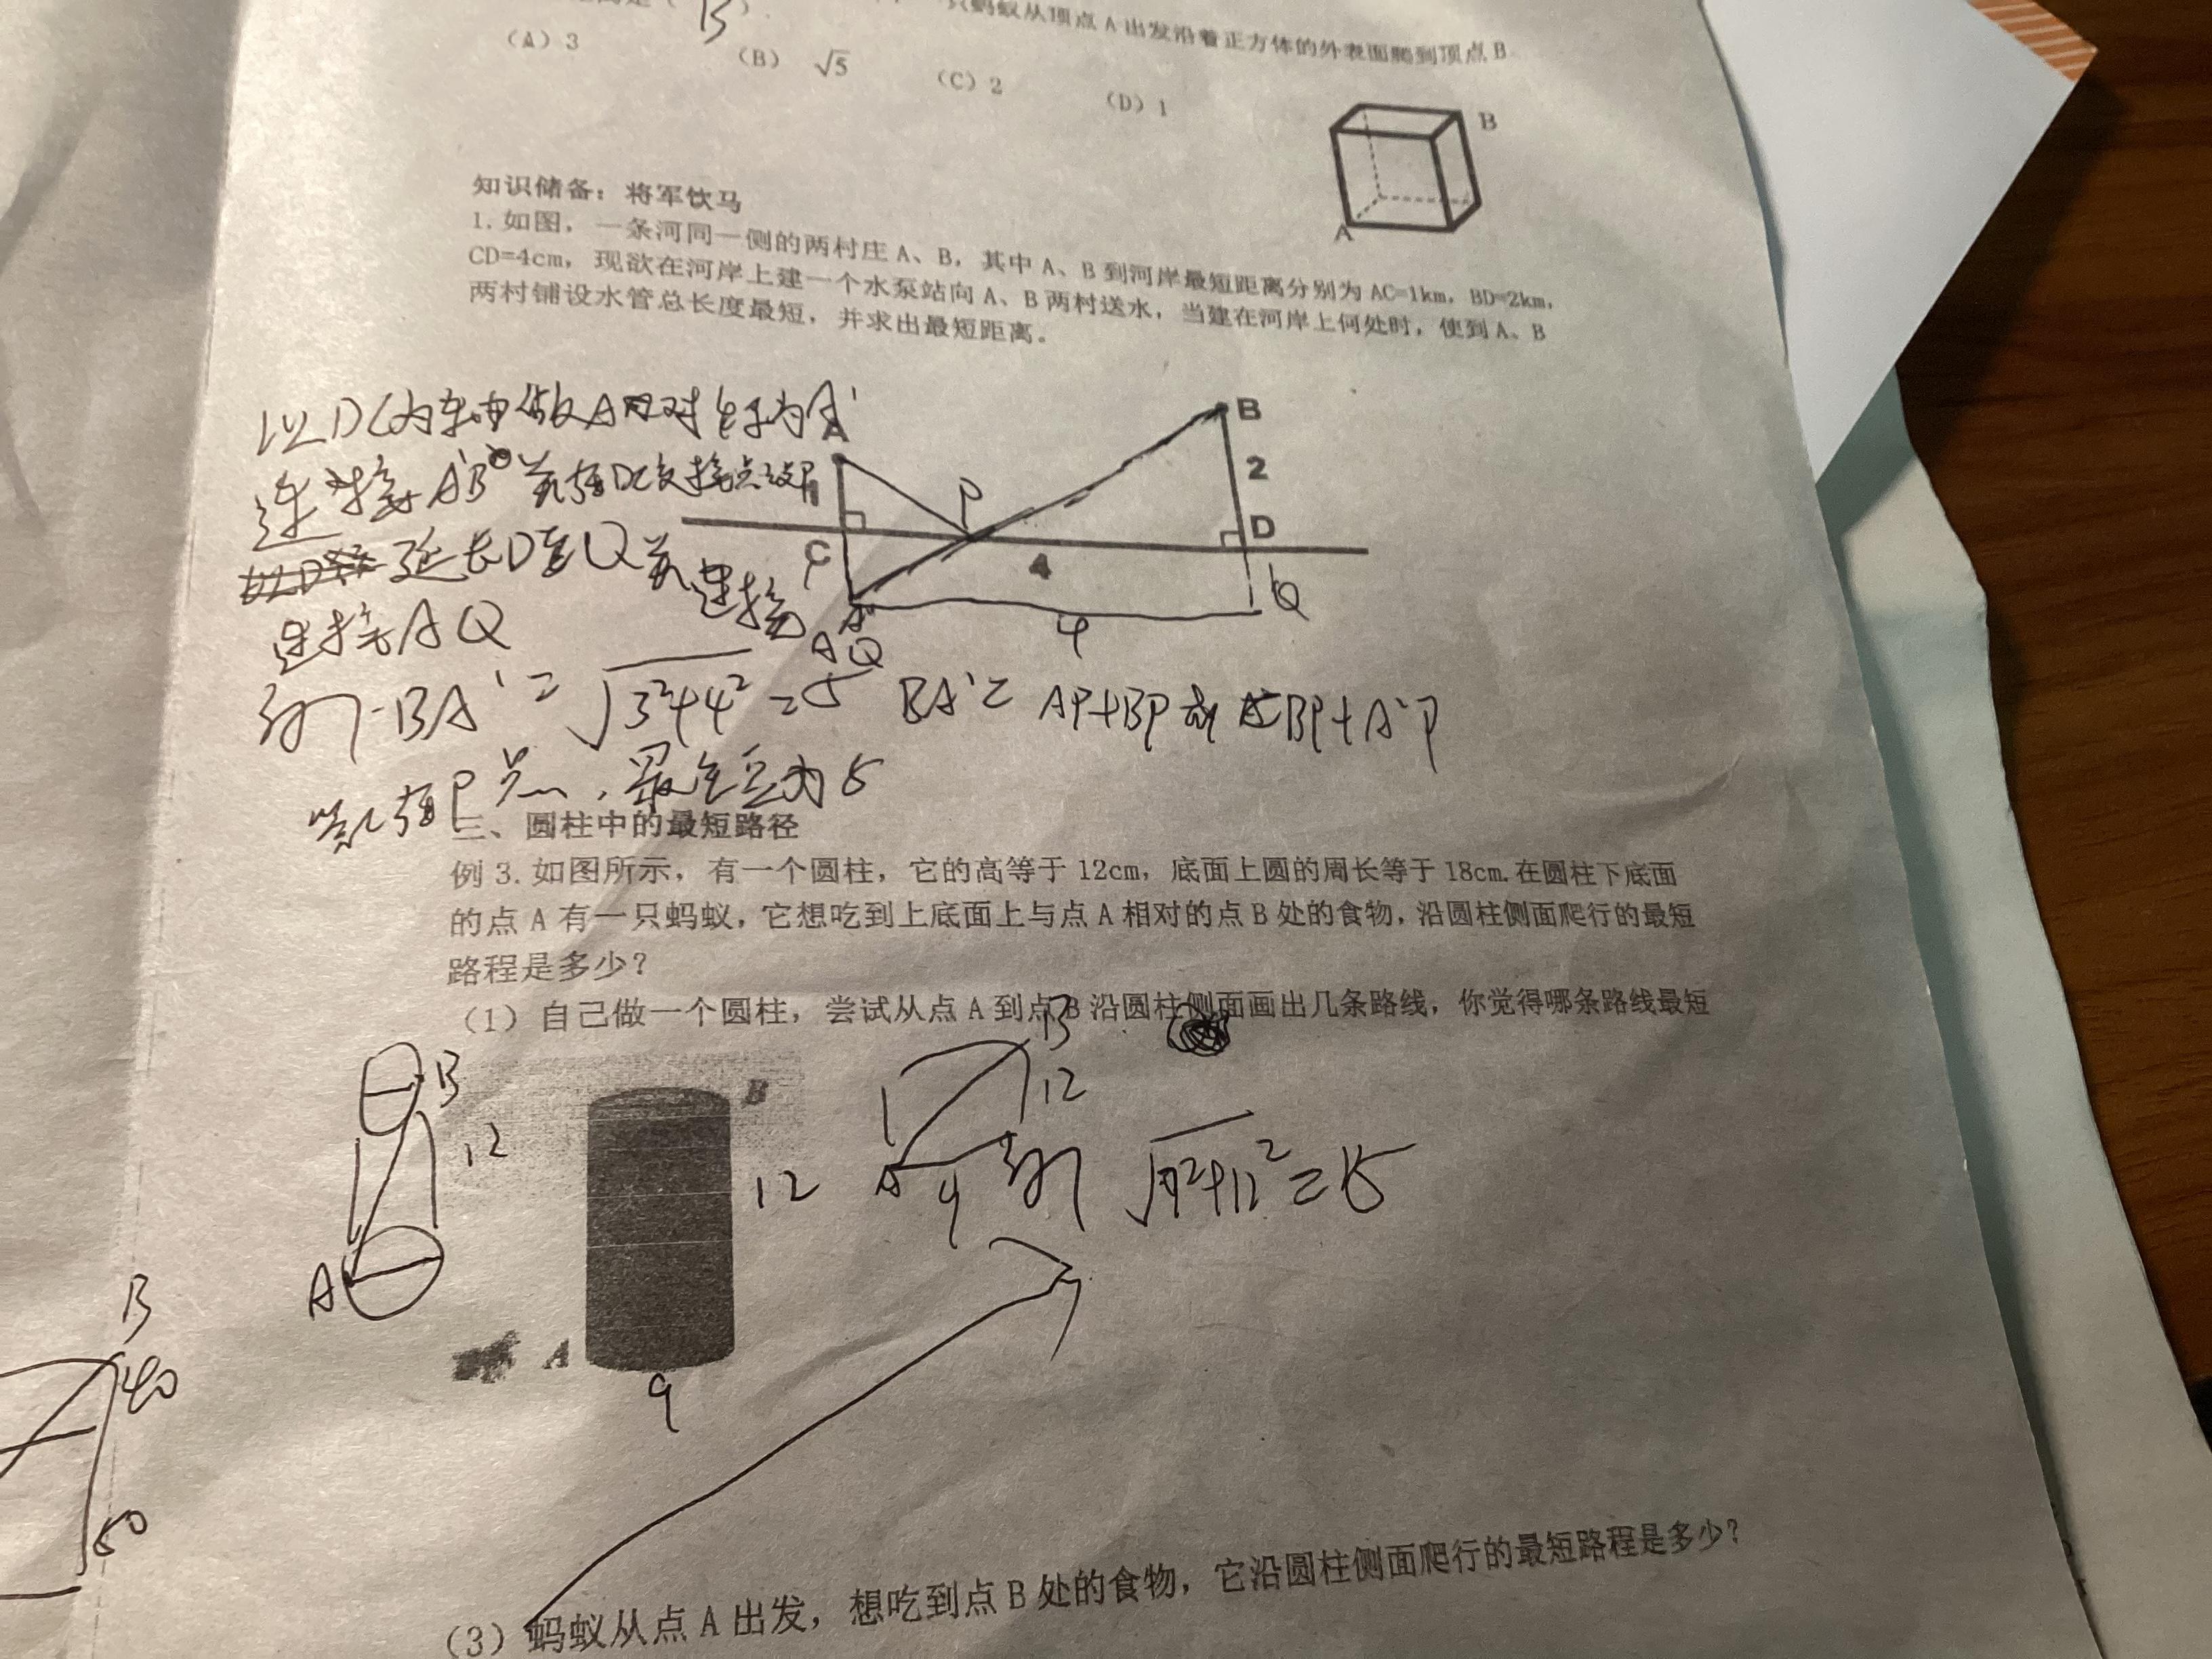 只蚂蚁从顶点A出发沿着正方体的外表面爬到顶点B
B
(A) 3
(B) √5
(C) 2
(D) 1
B
A
知识储备：将军饮马
1. 如图，一条河同一侧的两村庄A、B，其中A、B到河岸最短距离分别为AC=1km，BD=2km，
CD=4cm，现欲在河岸上建一个水泵站向A、B两村送水，当建在河岸上何处时，使到A、B
两村铺设水管总长度最短，并求出最短距离。
以DC为轴做A对 为A'
连接A'B 交 点 P
延长D至Q
连接
AQ
连接AQ
A
1
C
1
A'
P
B
2
D
4
1
Q
4
则 BA' = √3²+4² = 5 BA' = AP+BP BP+A'P
P点，最 为5
三、圆柱中的最短路径
例3. 如图所示，有一个圆柱，它的高等于12cm，底面上圆的周长等于18cm. 在圆柱下底面
的点A有一只蚂蚁，它想吃到上底面上与点A相对的点B处的食物，沿圆柱侧面爬行的最短
路程是多少？
(1) 自己做一个圆柱，尝试从点A到点B沿圆柱侧面画出几条路线，你觉得哪条路线最短
B
12
A
B
12
A
9
B
12
A
9
则 √9²+12² = 15
B
40
50
(3) 蚂蚁从点A出发，想吃到点B处的食物，它沿圆柱侧面爬行的最短路程是多少？